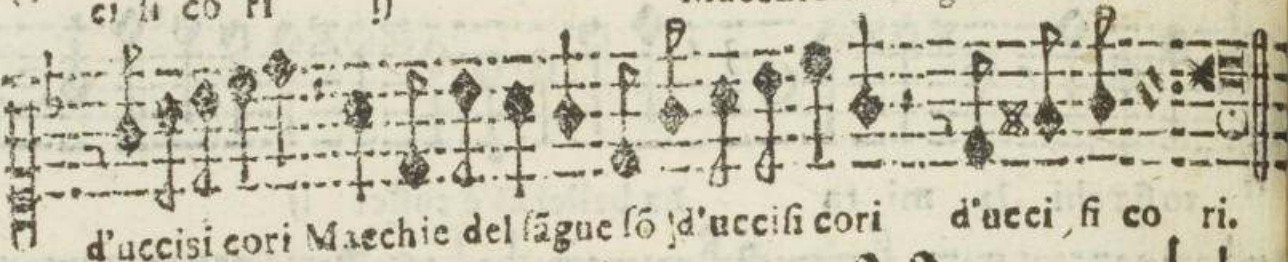 ci si co ri ij
d'uccisi cori Macchie del sãgue sõ d'uccisi cori d'ucci si co ri.